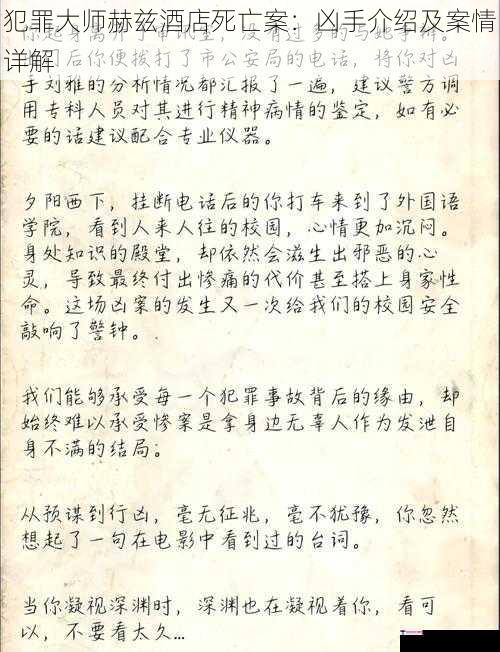 犯罪大师赫兹酒店死亡案：凶手介绍及案情
详解
后你便拨打了市公安局的电话，将你对凶
手刘雅的分析情况都汇报了一遍，建议警方调
用专科人员对其进行精神病情的鉴定，如有必
要的话建议配合专业仪器。
夕阳西下，挂断电话后的你打车来到了外国语
学院，看到人来人往的校园，心情更加沉闷。
身处知识的殿堂，却依然会滋生出邪恶的心
灵，导致最终付出惨痛的代价甚至搭上身家性
命。这场凶案的发生又一次给我们的校园安全
敲响了警钟。
我们能够承受每一个犯罪事故背后的缘由，却
始终难以承受惨案是拿身边无辜人作为发泄自
身不满的结局。
从预谋到行凶，毫无征兆，毫不犹豫，你忽然
想起了一句在电影中看到过的台词。
当你凝视深渊时，深渊也在凝视着你，看可
以，不要看太久…